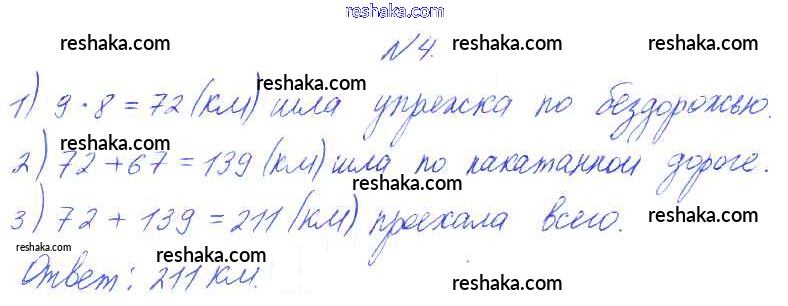 reshaka.com
№ 4.
reshaka.com reshaka.com reshaka.com
reshaka.com
1) 9 · 8 = 72 (км) шла упряжка по бездорожью.
reshaka.com reshaka.com
2) 72 + 67 = 139 (км) шла по накатанной дороге.
reshaka.com reshaka.com
3) 72 + 139 = 211 (км) проехала всего.
reshaka.com reshaka.com
reshaka.com
Ответ: 211 км.
reshaka.com reshaka.com